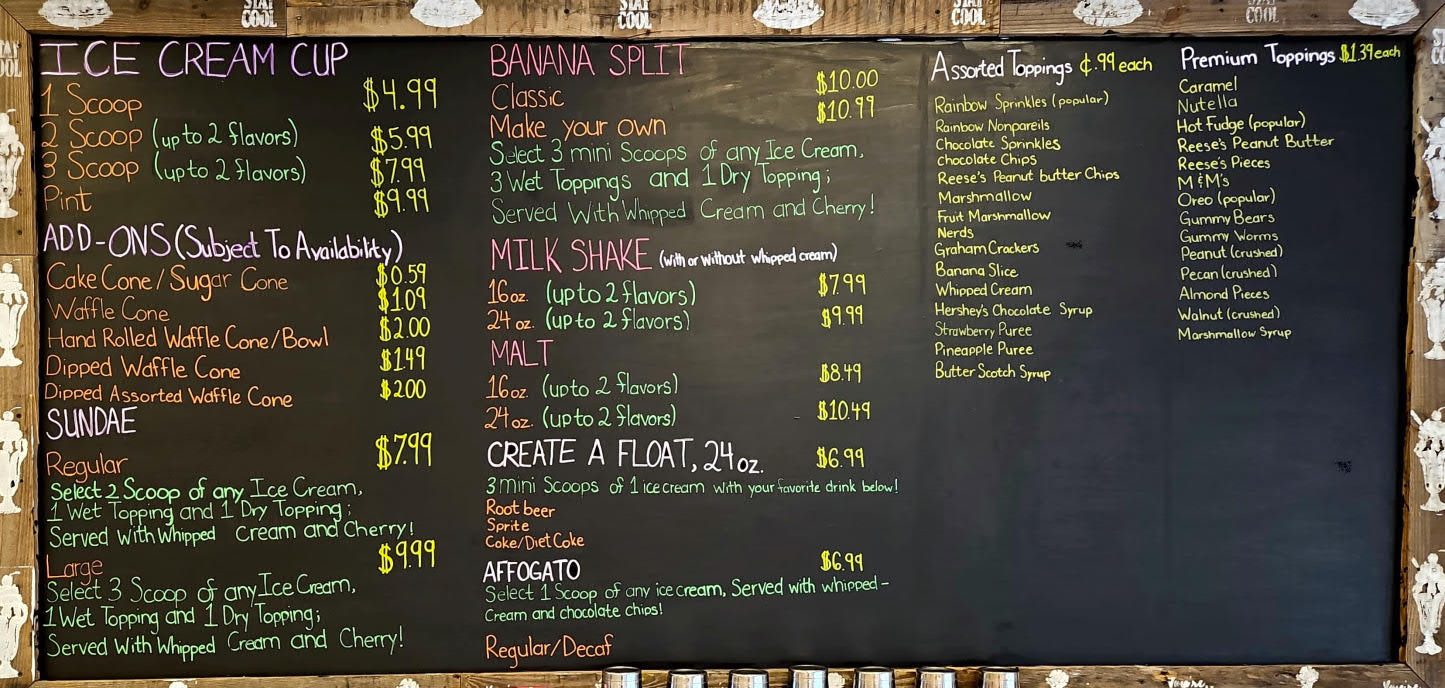 STAY COOL
STAY COOL
STAY COOL
STAY COOL
ICE CREAM CUP
1 Scoop $4.99
2 Scoop (up to 2 flavors) $5.99
3 Scoop (up to 2 flavors) $7.99
Pint $9.99
ADD-ONS (Subject To Availability)
Cake Cone/Sugar Cone $0.59
Waffle Cone $1.09
Hand Rolled Waffle Cone/Bowl $2.00
Dipped Waffle Cone $1.49
Dipped Assorted Waffle Cone $2.00
SUNDAE
Regular $7.99
Select 2 Scoop of any Ice Cream,
1 Wet Topping and 1 Dry Topping;
Served With Whipped Cream and Cherry!
Large $9.99
Select 3 Scoop of any Ice Cream,
1 Wet Topping and 1 Dry Topping;
Served With Whipped Cream and Cherry!
BANANA SPLIT
Classic $10.00
Make your own $10.99
Select 3 mini Scoops of any Ice Cream,
3 Wet Toppings and 1 Dry Topping;
Served With Whipped Cream and Cherry!
MILK SHAKE (with or without whipped cream)
16oz. (up to 2 flavors) $7.99
24 oz. (up to 2 flavors) $9.99
MALT
16oz. (up to 2 flavors) $8.49
24oz. (up to 2 flavors) $10.49
CREATE A FLOAT, 24oz. $6.99
3 mini Scoops of 1 ice cream with your favorite drink below!
Root beer
Sprite
Coke/Diet Coke
AFFOGATO $6.99
Select 1 Scoop of any ice cream, Served with whipped-
Cream and chocolate chips!
Regular/Decaf
Assorted Toppings ¢.99 each
Rainbow Sprinkles (popular)
Rainbow Nonpareils
Chocolate Sprinkles
chocolate Chips
Reese's Peanut butter Chips
Marshmallow
Fruit Marshmallow
Nerds
Graham Crackers
Banana Slice
Whipped Cream
Hershey's Chocolate Syrup
Strawberry Puree
Pineapple Puree
Butter Scotch Syrup
Premium Toppings $1.39 each
Caramel
Nutella
Hot Fudge (popular)
Reese's Peanut Butter
Reese's Pieces
M&M's
Oreo (popular)
Gummy Bears
Gummy Worms
Peanut (crushed)
Pecan (crushed)
Almond Pieces
Walnut (crushed)
Marshmallow Syrup